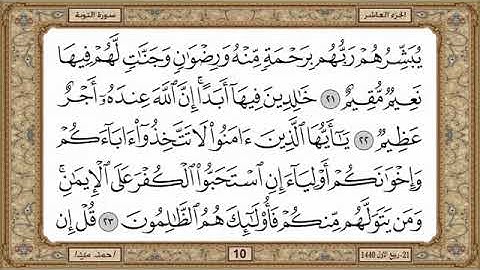 سورة التوبة
الجزء العاشر
يُبَشِّرُهُمْ رَبُّهُم بِرَحْمَةٍ مِّنْهُ وَرِضْوَٰنٍ وَجَنَّٰتٍ لَّهُمْ فِيهَا
نَعِيمٌ مُّقِيمٌ ٢١ خَٰلِدِينَ فِيهَآ أَبَدًا ۚ إِنَّ ٱللَّهَ عِندَهُۥٓ أَجْرٌ
عَظِيمٌ ٢٢ يَٰٓأَيُّهَا ٱلَّذِينَ ءَامَنُوا۟ لَا تَتَّخِذُوٓا۟ ءَابَآءَكُمْ
وَإِخْوَٰنَكُمْ أَوْلِيَآءَ إِنِ ٱسْتَحَبُّوا۟ ٱلْكُفْرَ عَلَى ٱلْإِيمَٰنِ ۚ
وَمَن يَتَوَلَّهُم مِّنكُمْ فَأُو۟لَٰٓئِكَ هُمُ ٱلظَّٰلِمُونَ ٢٣ قُلْ إِن
أحمد
10
21- ربيع الأول 1440